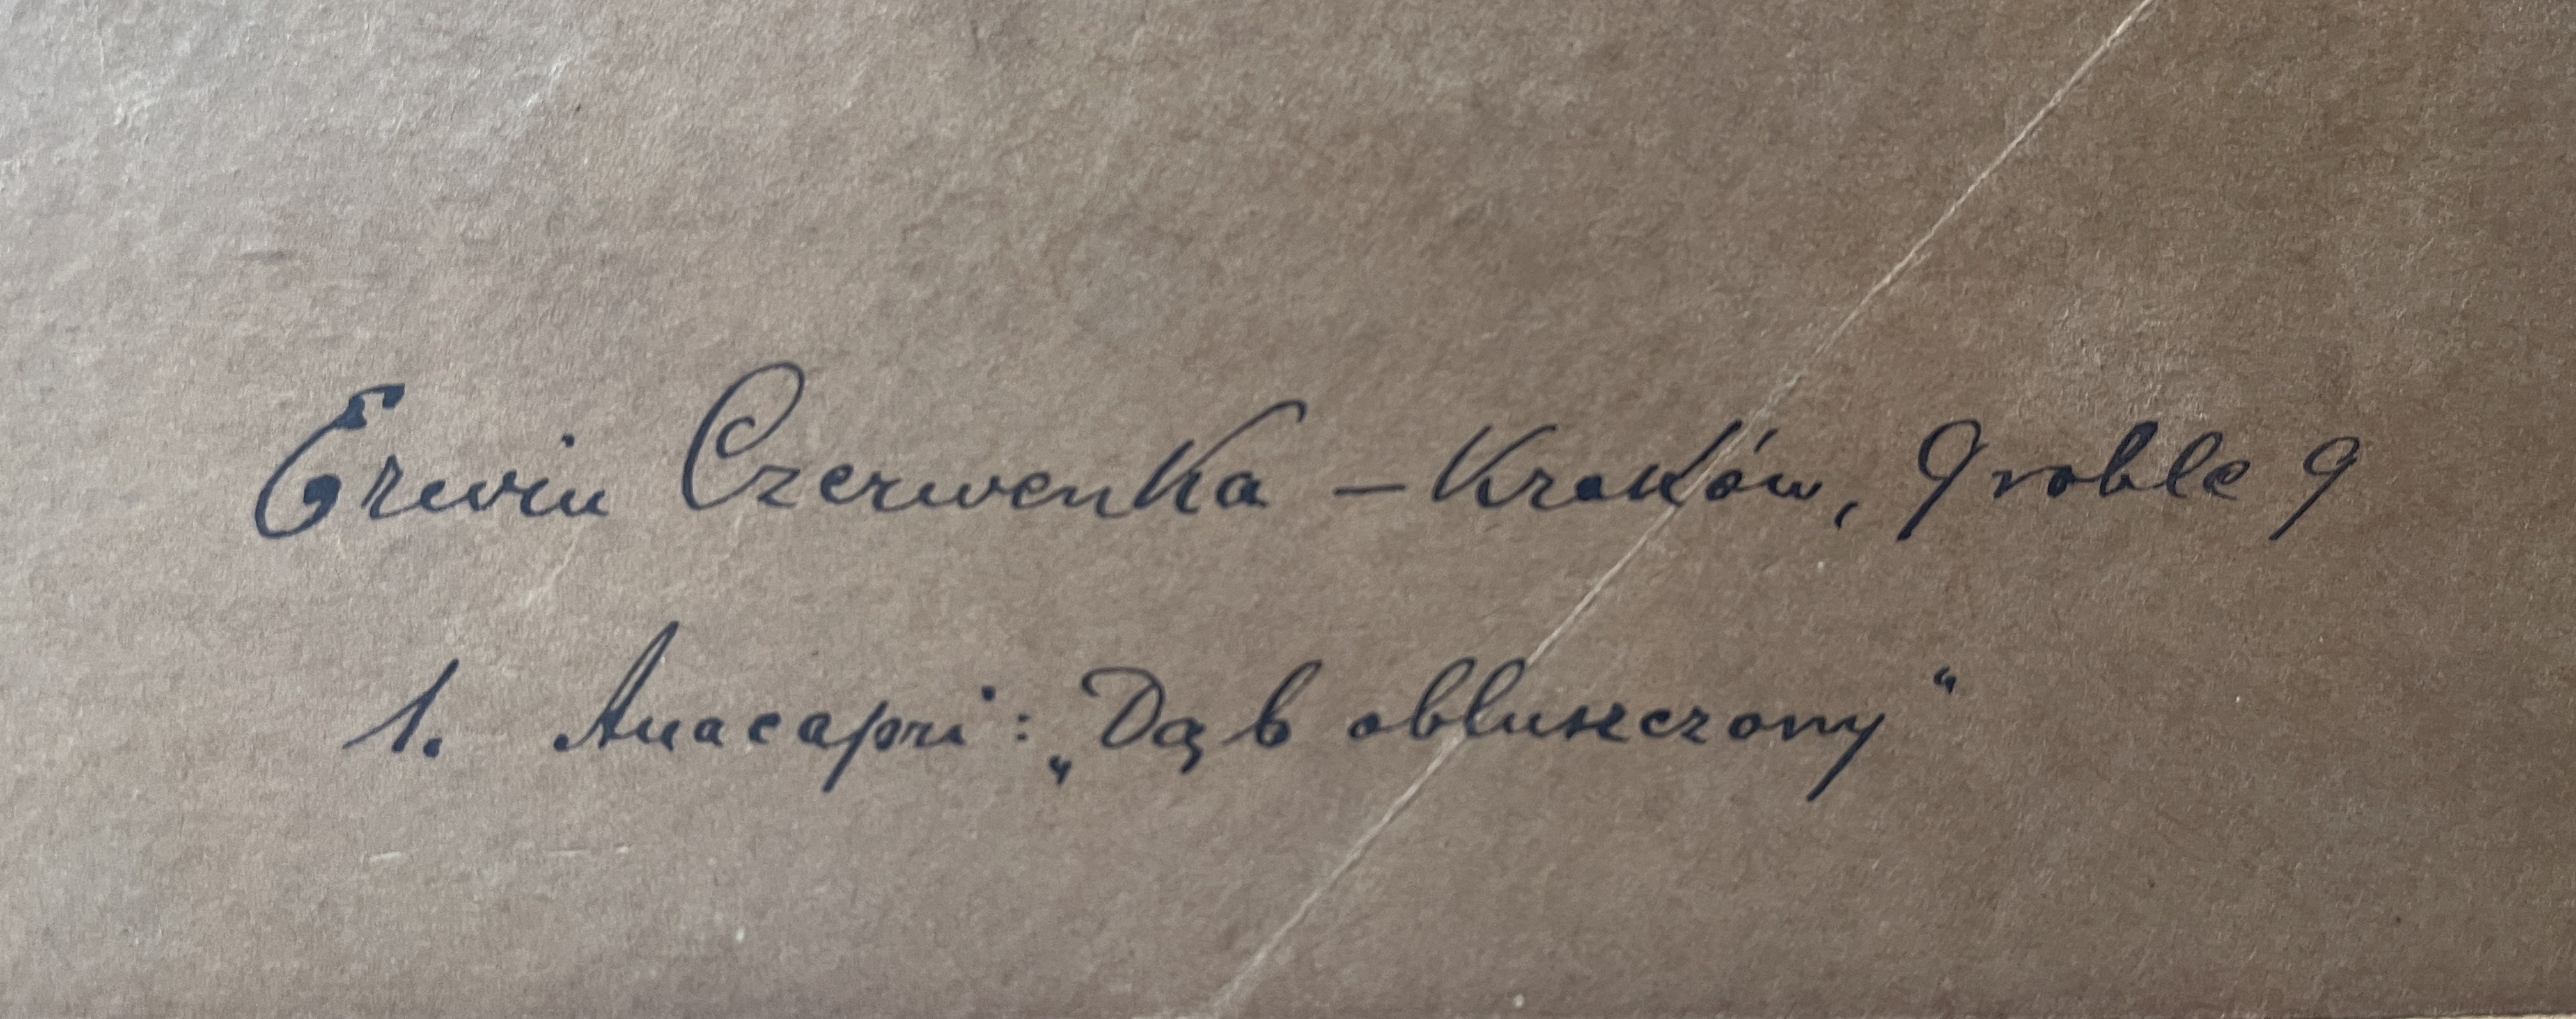 Erwin Czerwenka – Kraków, Groble 9
1. Anacapri: „Dąb obluszczony“